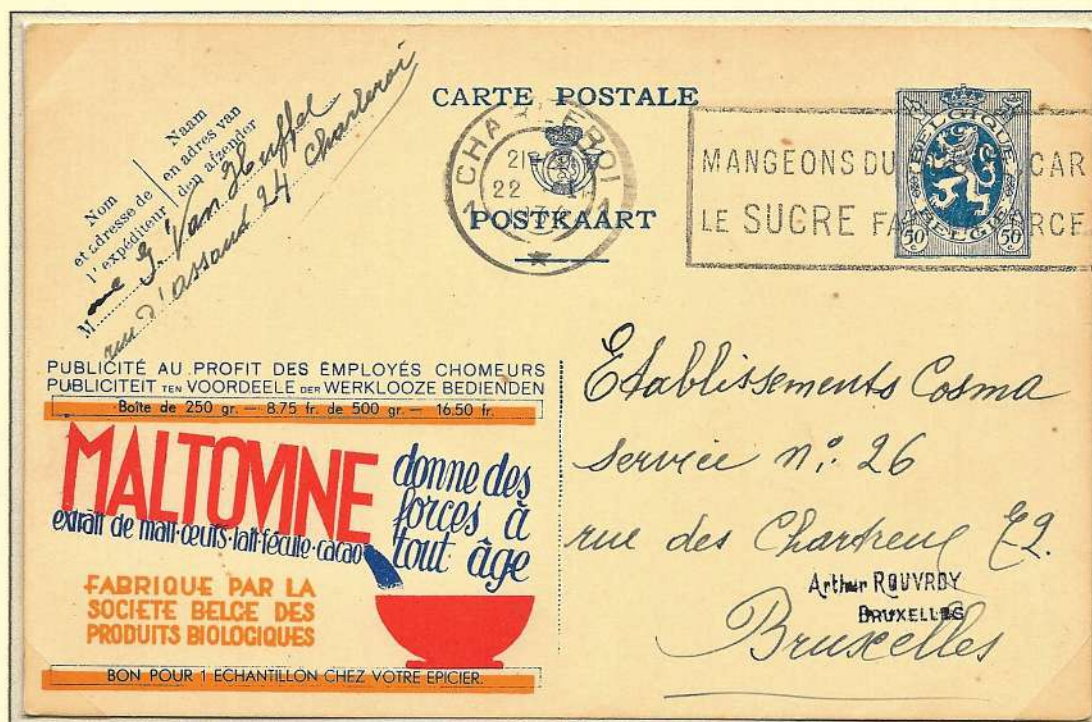 CARTE POSTALE
POSTKAART
Nom
et adresse de
l'expéditeur
Naam
en adres van
den afzender
Mme G. Van Huffel
rue d'assaut 24 Charleroi
1 CHA EROI 1
22
MANGEONS DU CAR
LE SUCRE FA RCE
BELGIQUE
BELGIE
50 c 50 c
PUBLICITÉ AU PROFIT DES EMPLOYÉS CHOMEURS
PUBLICITEIT TEN VOORDEELE DER WERKLOOZE BEDIENDEN
Boîte de 250 gr. — 8.75 fr. de 500 gr. — 16.50 fr.
MALTOVINE
extrait de malt-œufs-lait-fécule-cacao
donne des
forces à
tout âge
FABRIQUE PAR LA
SOCIETE BELGE DES
PRODUITS BIOLOGIQUES
BON POUR 1 ECHANTILLON CHEZ VOTRE EPICIER.
Etablissements Cosma
service n°: 26
rue des Chartreux
Arthur ROUVROY
BRUXELLES
Bruxelles